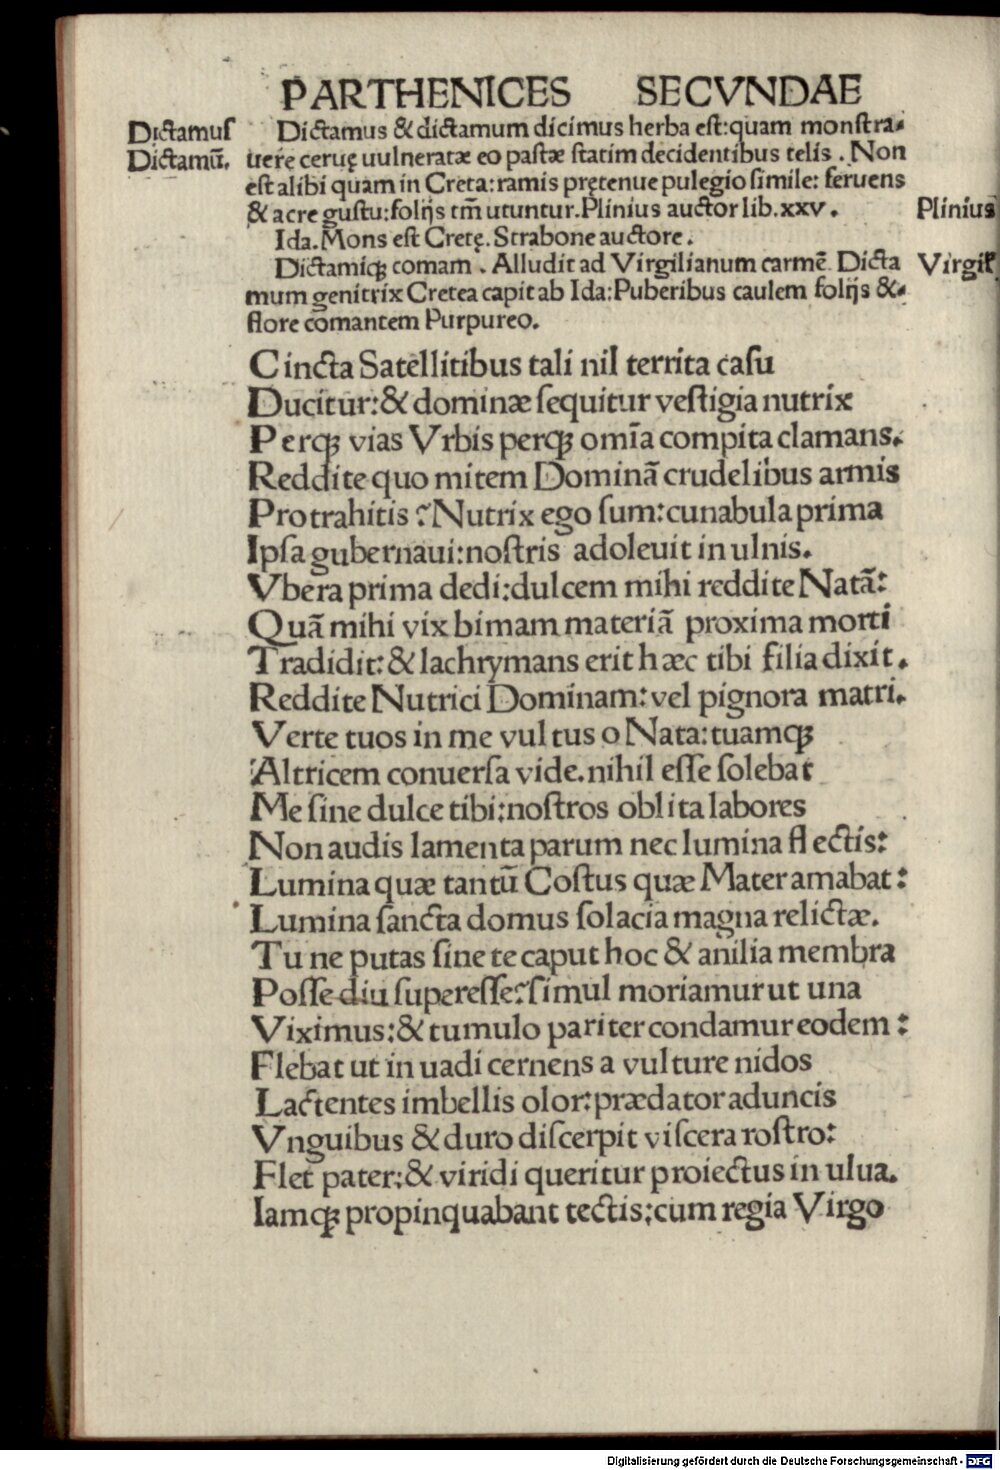 PARTHENICES SECVNDAE
Dictamuſ
Dictamū.
Dictamus & dictamum dicimus herba est: quam monstra-
uere ceruę uulneratæ eo pastæ statim decidentibus telis. Non
est alibi quam in Creta: ramis pręteniue pulegio simile: feruens
& acre gustu: folijs tm̄ utuntur. Plinius auctor lib. xxv.
Plinius
Ida. Mons est Cretę. Strabone auctore.
Dictamiqꝫ comam. Alludit ad Virgilianum carmē. Dicta
Virgiľ
mum genitrix Cretea capit ab Ida: Puberibus caulem folijs &
flore comantem Purpureo.
Cincta Satellitibus tali nil territa caſu
Ducitur: & dominæ ſequitur veſtigia nutrix
Perqꝫ vias Vrbis perqꝫ omīa compita clamans.
Reddite quo mitem Dominā crudelibus armis
Protrahitis? Nutrix ego ſum: cunabula prima
Ipſa gubernaui: noſtris adoleuit in ulnis.
Vbera prima dedi: dulcem mihi reddite Natā:
Quā mihi vix bimam materiā proxima morti
Tradidit: & lachrymans erit hæc tibi filia dixit.
Reddite Nutrici Dominam: vel pignora matri.
Verte tuos in me vultus o Nata: tuamqꝫ
Altricem conuerſa vide. nihil eſſe ſolebat
Me ſine dulce tibi: noſtros oblita labores
Non audis lamenta parum nec lumina flectis:
Lumina quæ tantū Coſtus quæ Mater amabat:
Lumina ſancta domus ſolacia magna relictæ.
Tu ne putas ſine te caput hoc & anilia membra
Poſſe diu ſupereſſe? ſimul moriamur ut una
Viximus: & tumulo pariter condamur eodem:
Flebat ut in uadi cernens a vulture nidos
Lactentes imbellis olor: prædator aduncis
Vnguibus & duro diſcerpit viſcera roſtro:
Flet pater: & viridi queritur proiectus in ulua.
Iamqꝫ propinquabant tectis: cum regia Virgo
Digitalisierung gefördert durch die Deutsche Forschungsgemeinschaft - DFG